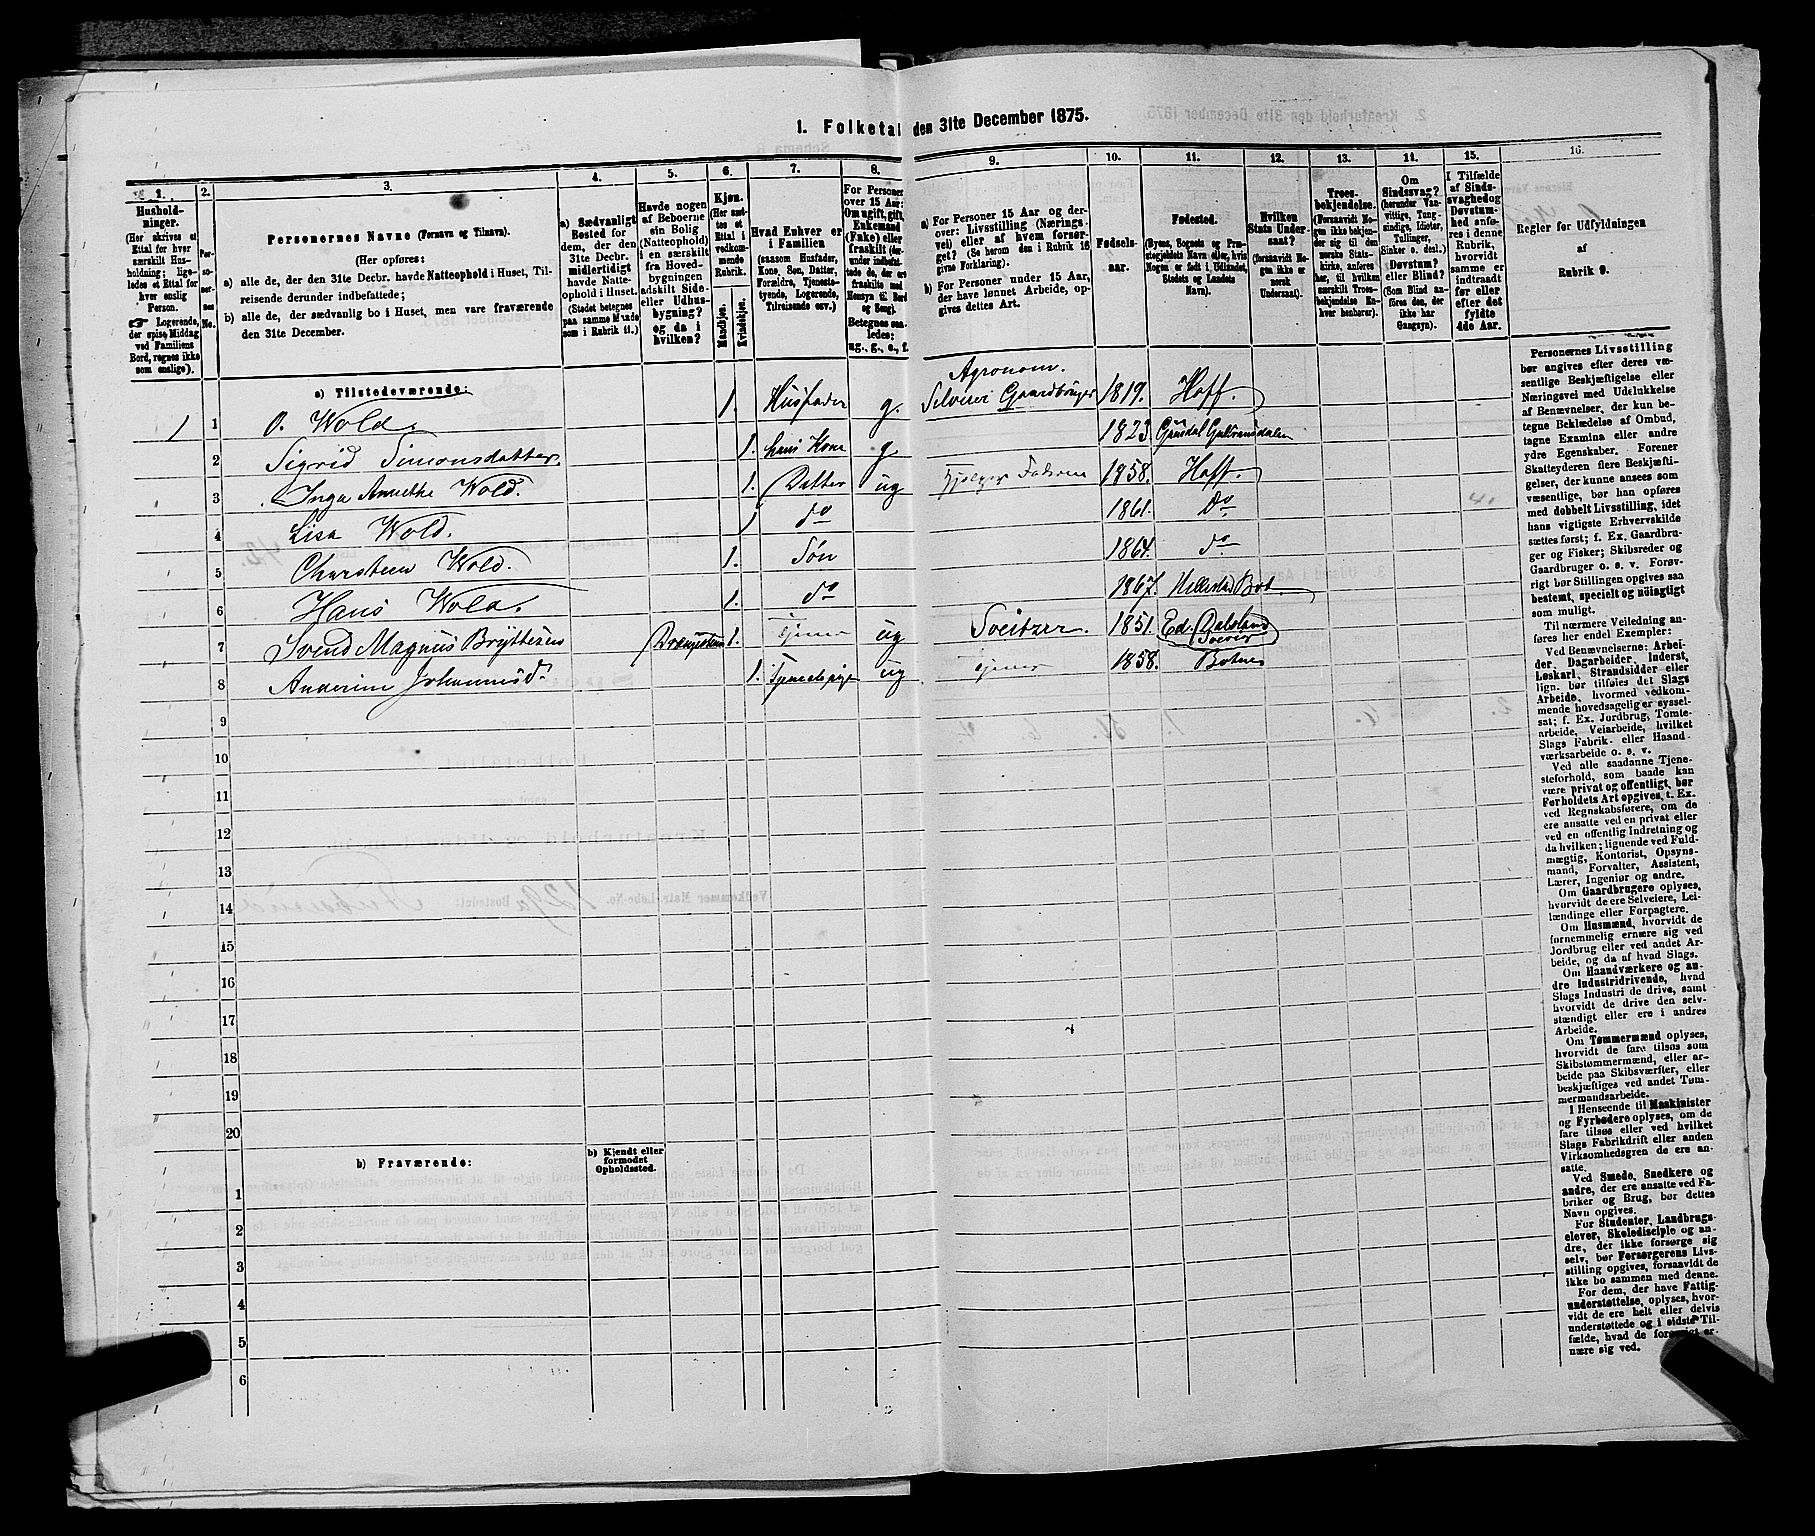 1. Folketal den 31te December 1875.
1.
2.
3.
4.
5.
6.
7.
8.
9.
10.
11.
12.
13.
14.
15.
16.
Hushold-
ninger.
(Her skrives et
Ettal for hver
særskilt Hus-
holdning; lige-
ledes et Ettal for
hver enslig
Person.
☞ Logerende,
der spise Middag
ved Familiens
Bord, regnes ikke
som enslige).
Per-
so-
ner-
nes
No.
Personernes Navne (Fornavn og Tilnavn).
(Her opføres:
a) alle de, der den 31te Decbr. havde Natteophold i Huset, Til-
reisende derunder indbefattede;
b) alle de, der sædvanlig bo i Huset, men vare fraværende
den 31te December.
a) Sædvanligt
Bosted for
dem, der den
31te Decbr.
midlertidigt
havde Natte-
ophold i Huset.
(Stedet betegnes
paa samme Maade
som i Rubrik 11.)
Havde nogen
af Beboerne
sin Bolig
(Natteophold)
i en særskilt
fra Hoved-
bygningen
adskilt Side-
eller Udhus-
bygning?
og da i
hvilken?
Kjøn.
(Her sæt-
tes et
Ettal i
vedkom-
mende
Rubrik.
Mandkjøn.
Kvindekjøn.
Hvad Enhver er
i Familien
(saasom Husfader,
Kone, Søn, Datter,
Forældre, Tjeneste-
tyende, Logerende,
Tilreisende osv.)
For Personer
over 15 Aar:
Om ugift, gift,
Enkemand
(Enke) eller
fraskilt
Betegnes saa-
ledes:
ug., g., e., f.
a) For Personer 15 Aar og der-
over: Livsstilling (Nærings-
vei) eller af hvem forsør-
get? (Se herom den i Rubrik 16
givne Forklaring).
b) For Personer under 15 Aar,
der have lønnet Arbeide, op-
gives dettes Art.
Fødsels-
aar.
Fødested.
(Byens, Sognets og Præ-
stegjeldets Navn eller, hvis
Nogen er født i Udlandet,
Stedets og Landets
Navn).
Hvilken
Stats Under-
saat?
(forsaavidt No-
gen ikke er
norsk
Undersaat).
Troes-
bekjendelse.
(Forsaavidt No-
gen ikke bekjen-
der sig til den
norske Stats-
kirke, anføres
her, til hvilken
særskilt Troes-
bekjendelse En-
hver henhører).
Om
Sindssvag?
(herunder Van-
vittige, Tung-
sindige, Idioter,
Tullinger,
Sinker o. desl.)
Døvstum?
eller Blind?
(Som Blind an-
føres den, der
ikke har
Gangsyn).
I Tilfælde
af Sinds-
svaghed og
Døvstum-
hed anfø-
res i denne
Rubrik,
hvorvidt
samme er
indtraadt
før eller
efter det
fyldte
4de Aar.
Regler for Udfyldningen
af
Rubrik 9.
a) Tilstedeværende:
1 1 O. Wold. 1. Husfader g. Agronom. Selveier Gaardbruger 1819. Hoff.
2 Sigrid Simonsdatter. 1. hans Kone g 1823. Gausdal Gulbransdalen
3 Inga Annethe Wold. 1. Datter ug hjelper Faderen 1858. Hoff.
4 Lisa Wold. 1 do 1861. Do
5 Christen Wold. 1. Søn 1864. do
6 Hans Wold. 1. do 1867. Hillestad Bot.
7 Svend Magnus Bryttesen 1. Tjener ug Sveitzer. 1851. Ed. Dalsland Sverig
8 Anderine Johannesd. 1. Tjenestepige ug tjener 1858. Botne
9
10
11
12
13
14
15
16
17
18
19
20
b) Fraværende:
b) Kjendt eller
formodet
Opholdssted.
1
2
3
4
5
6
Personernes Livsstilling
bør angives efter deres væ-
sentlige Beskjæftigelse eller
Næringsvei med Udelukkelse
af Benævnelser, der kun be-
tegne Beklædelse af Ombud,
tagne Examina eller andre
ydre Egenskaber. Forener
Skatteyderen flere Beskjæfti-
gelser, der kunne ansees som
væsentlige, bør han opføres
med dobbelt Livsstilling, idet
hans vigtigste Erhvervskilde
sættes først; f. Ex. Gaardbru-
ger og Fisker; Skibsreder og
Gaardbruger o. s. v. Forøv-
rigt bør Stillingen opgives saa
bestemt, specielt og nöiagtigt
som muligt.
Til nærmere Veiledning an-
føres her endel Exempler:
Ved Benævnelserne: Arbei-
der, Dagarbeider, Inderst,
Løskarl, Strandsidder eller
lign. bør tilføies det Slags
Arbeide, hvormed vedkom-
mende hovedsagelig er syssel-
sat; f. Ex. Jordbrug, Tomte-
arbeide, Veiarbeide, hvilket
Slags Fabrik- eller Haand-
værksarbeide o. s. v.
Ved alle saadanne Tjene-
steforhold, som baade kan
være privat og offentligt, bør
Forholdets Art opgives, t. Ex.
ved Regnskabsførere, om de
ere ansatte ved en privat eller
ved en offentlig Indretning og
da hvilken; lignende ved Fuld-
mægtig, Kontorist, Opsyns-
mand, Forvalter, Assistent,
Lærer, Ingeniør og andre.
Om Gaardbrugere oplyses,
hvorvidt de ere Selveiere, Lei-
lændinge eller Forpagtere.
Om Husmænd, hvorvidt de
fornemmelig ernære sig ved
Jordbrug eller ved andet Ar-
beide, og da af hvad Slags.
Om Haandværkere og an-
dre Industridrivende, hvad
Slags Industri de drive, samt
hvorvidt de drive den selv-
stændigt eller ere i andres
Arbeide.
Om Tømmermænd oplyses,
hvorvidt de fare tilsøs som
Skibstømmermænd, eller ar-
beide paa Skibsværfter, eller
beskjæftiges ved andet Tøm-
mermandsarbeide.
I Henseende til Maskinister
og Fyrbødere oplyses, om de
fare tilsøs eller ved hvilket
Slags Fabrikdrift eller anden
Virksomhedsgren de ere an-
satte.
Ved Smede, Snedkere og
andre, der ere ansatte ved Fa-
briker og Brug, bør dettes
Navn opgives.
For Studenter, Landbrugs-
elever, Skoledisciple og an-
dre, der ikke forsørge sig
selv, bør Forsørgerens Livs-
stilling opgives, forsaavidt de
ikke bo sammen med denne.
For dem, der have Fattig-
understøttelse, oplyses, hvor-
vidt de ere helt eller delvis
understøttede og i sidste Til-
fælde, hvad de forøvrigt er-
nære sig ved.